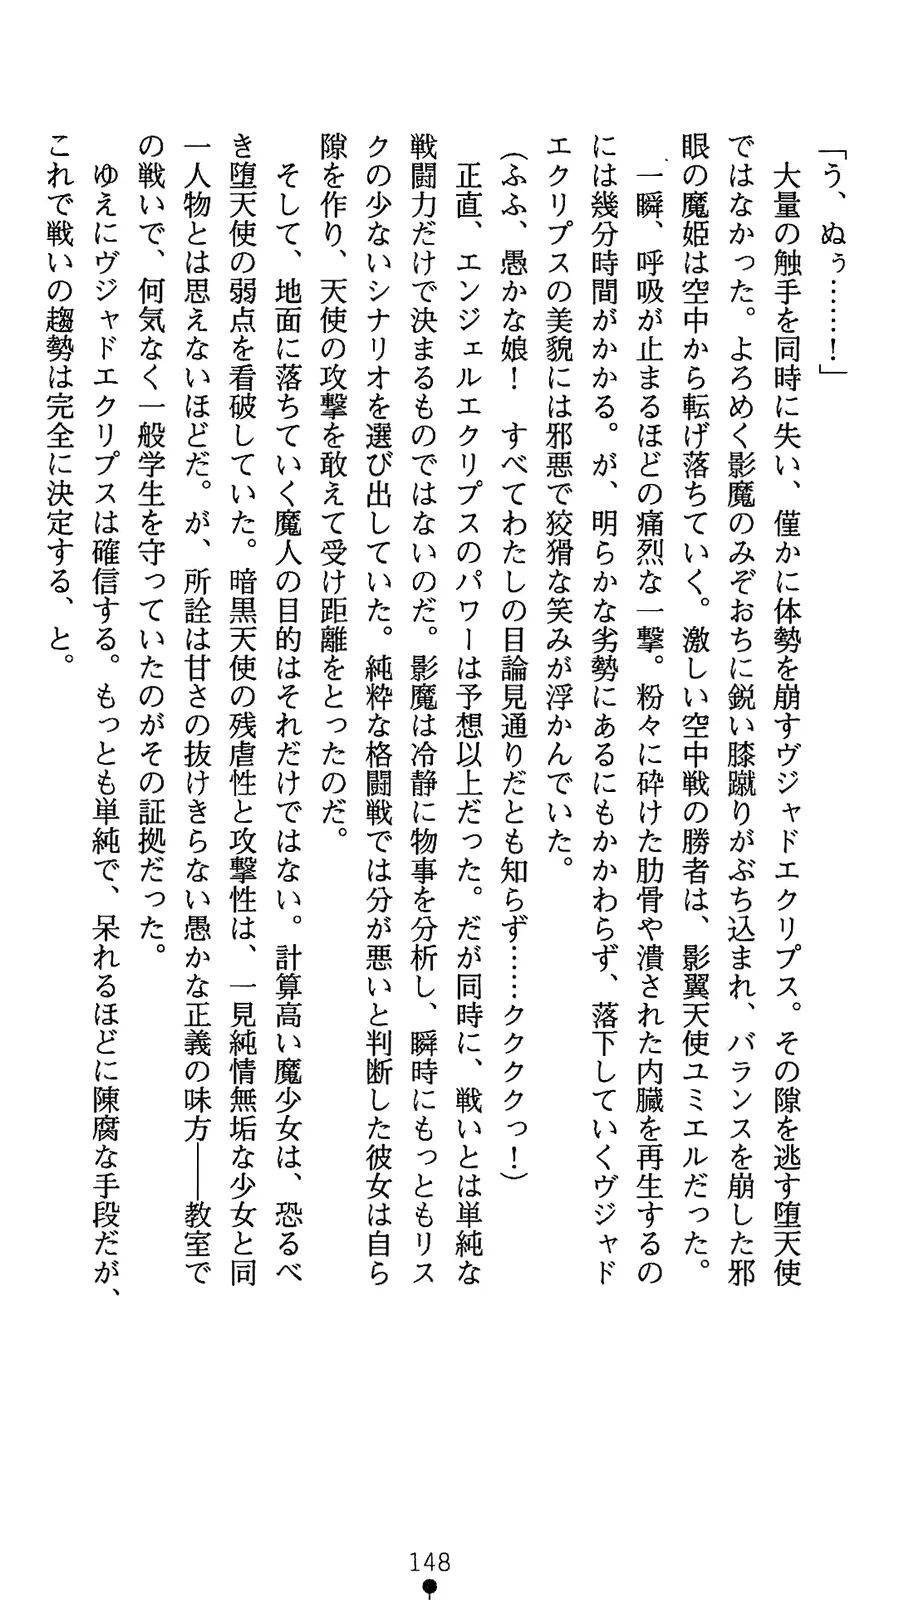 「う、ぬぅ……！」
　大量の触手を同時に失い、僅かに体勢を崩すヴジャドエクリプス。その隙を逃す堕天使
ではなかった。よろめく影魔のみぞおちに鋭い膝蹴りがぶち込まれ、バランスを崩した邪
眼の魔姫は空中から転げ落ちていく。激しい空中戦の勝者は、影翼天使ユミエルだった。
　一瞬、呼吸が止まるほどの痛烈な一撃。粉々に砕けた肋骨や潰された内臓を再生するの
には幾分時間がかかる。が、明らかな劣勢にあるにもかかわらず、落下していくヴジャド
エクリプスの美貌には邪悪で狡猾な笑みが浮かんでいた。
（ふふ、愚かな娘！　すべてわたしの目論見通りだとも知らず……クククっ！）
　正直、エンジェルエクリプスのパワーは予想以上だった。だが同時に、戦いとは単純な
戦闘力だけで決まるものではないのだ。影魔は冷静に物事を分析し、瞬時にもっともリス
クの少ないシナリオを選び出していた。純粋な格闘戦では分が悪いと判断した彼女は自ら
隙を作り、天使の攻撃を敢えて受け距離をとったのだ。
　そして、地面に落ちていく魔人の目的はそれだけではない。計算高い魔少女は、恐るべ
き堕天使の弱点を看破していた。暗黒天使の残虐性と攻撃性は、一見純情無垢な少女と同
一人物とは思えないほどだ。が、所詮は甘さの抜けきらない愚かな正義の味方――教室で
の戦いで、何気なく一般学生を守っていたのがその証拠だった。
　ゆえにヴジャドエクリプスは確信する。もっとも単純で、呆れるほどに陳腐な手段だが、
これで戦いの趨勢は完全に決定する、と。
148